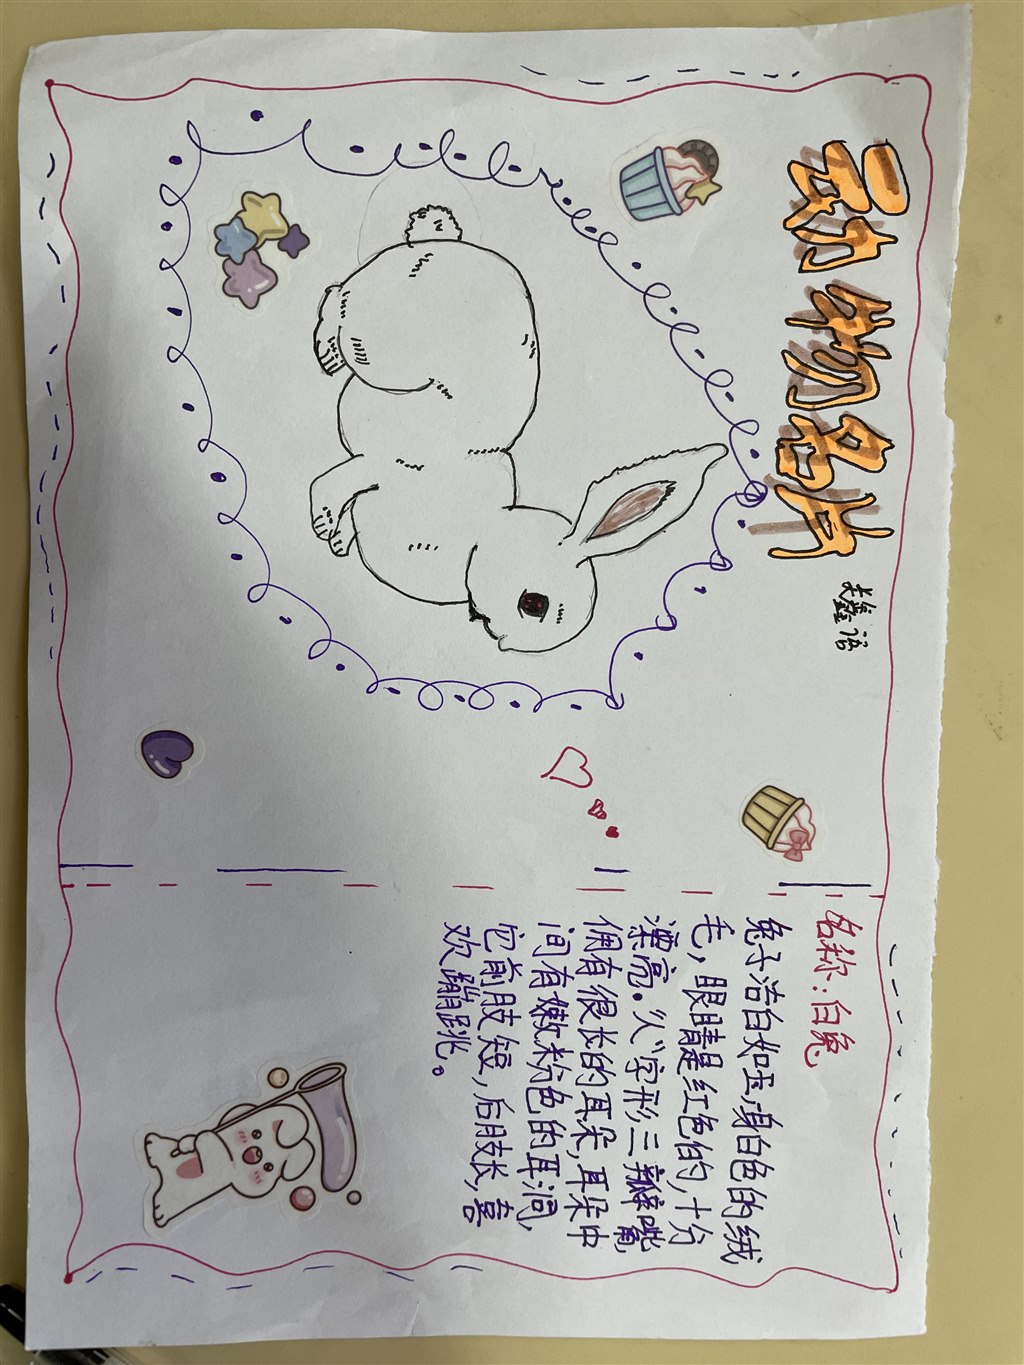 动物名片
鑫语
名称:白兔
兔子洁白如玉,身白色的绒
毛,眼睛是红色的,十分
漂亮。“人”字形三瓣嘴,
佣有很长的耳朵,耳朵中
间有嫩粉色的耳洞,
它前肢短,后肢长,喜
欢蹦跳。